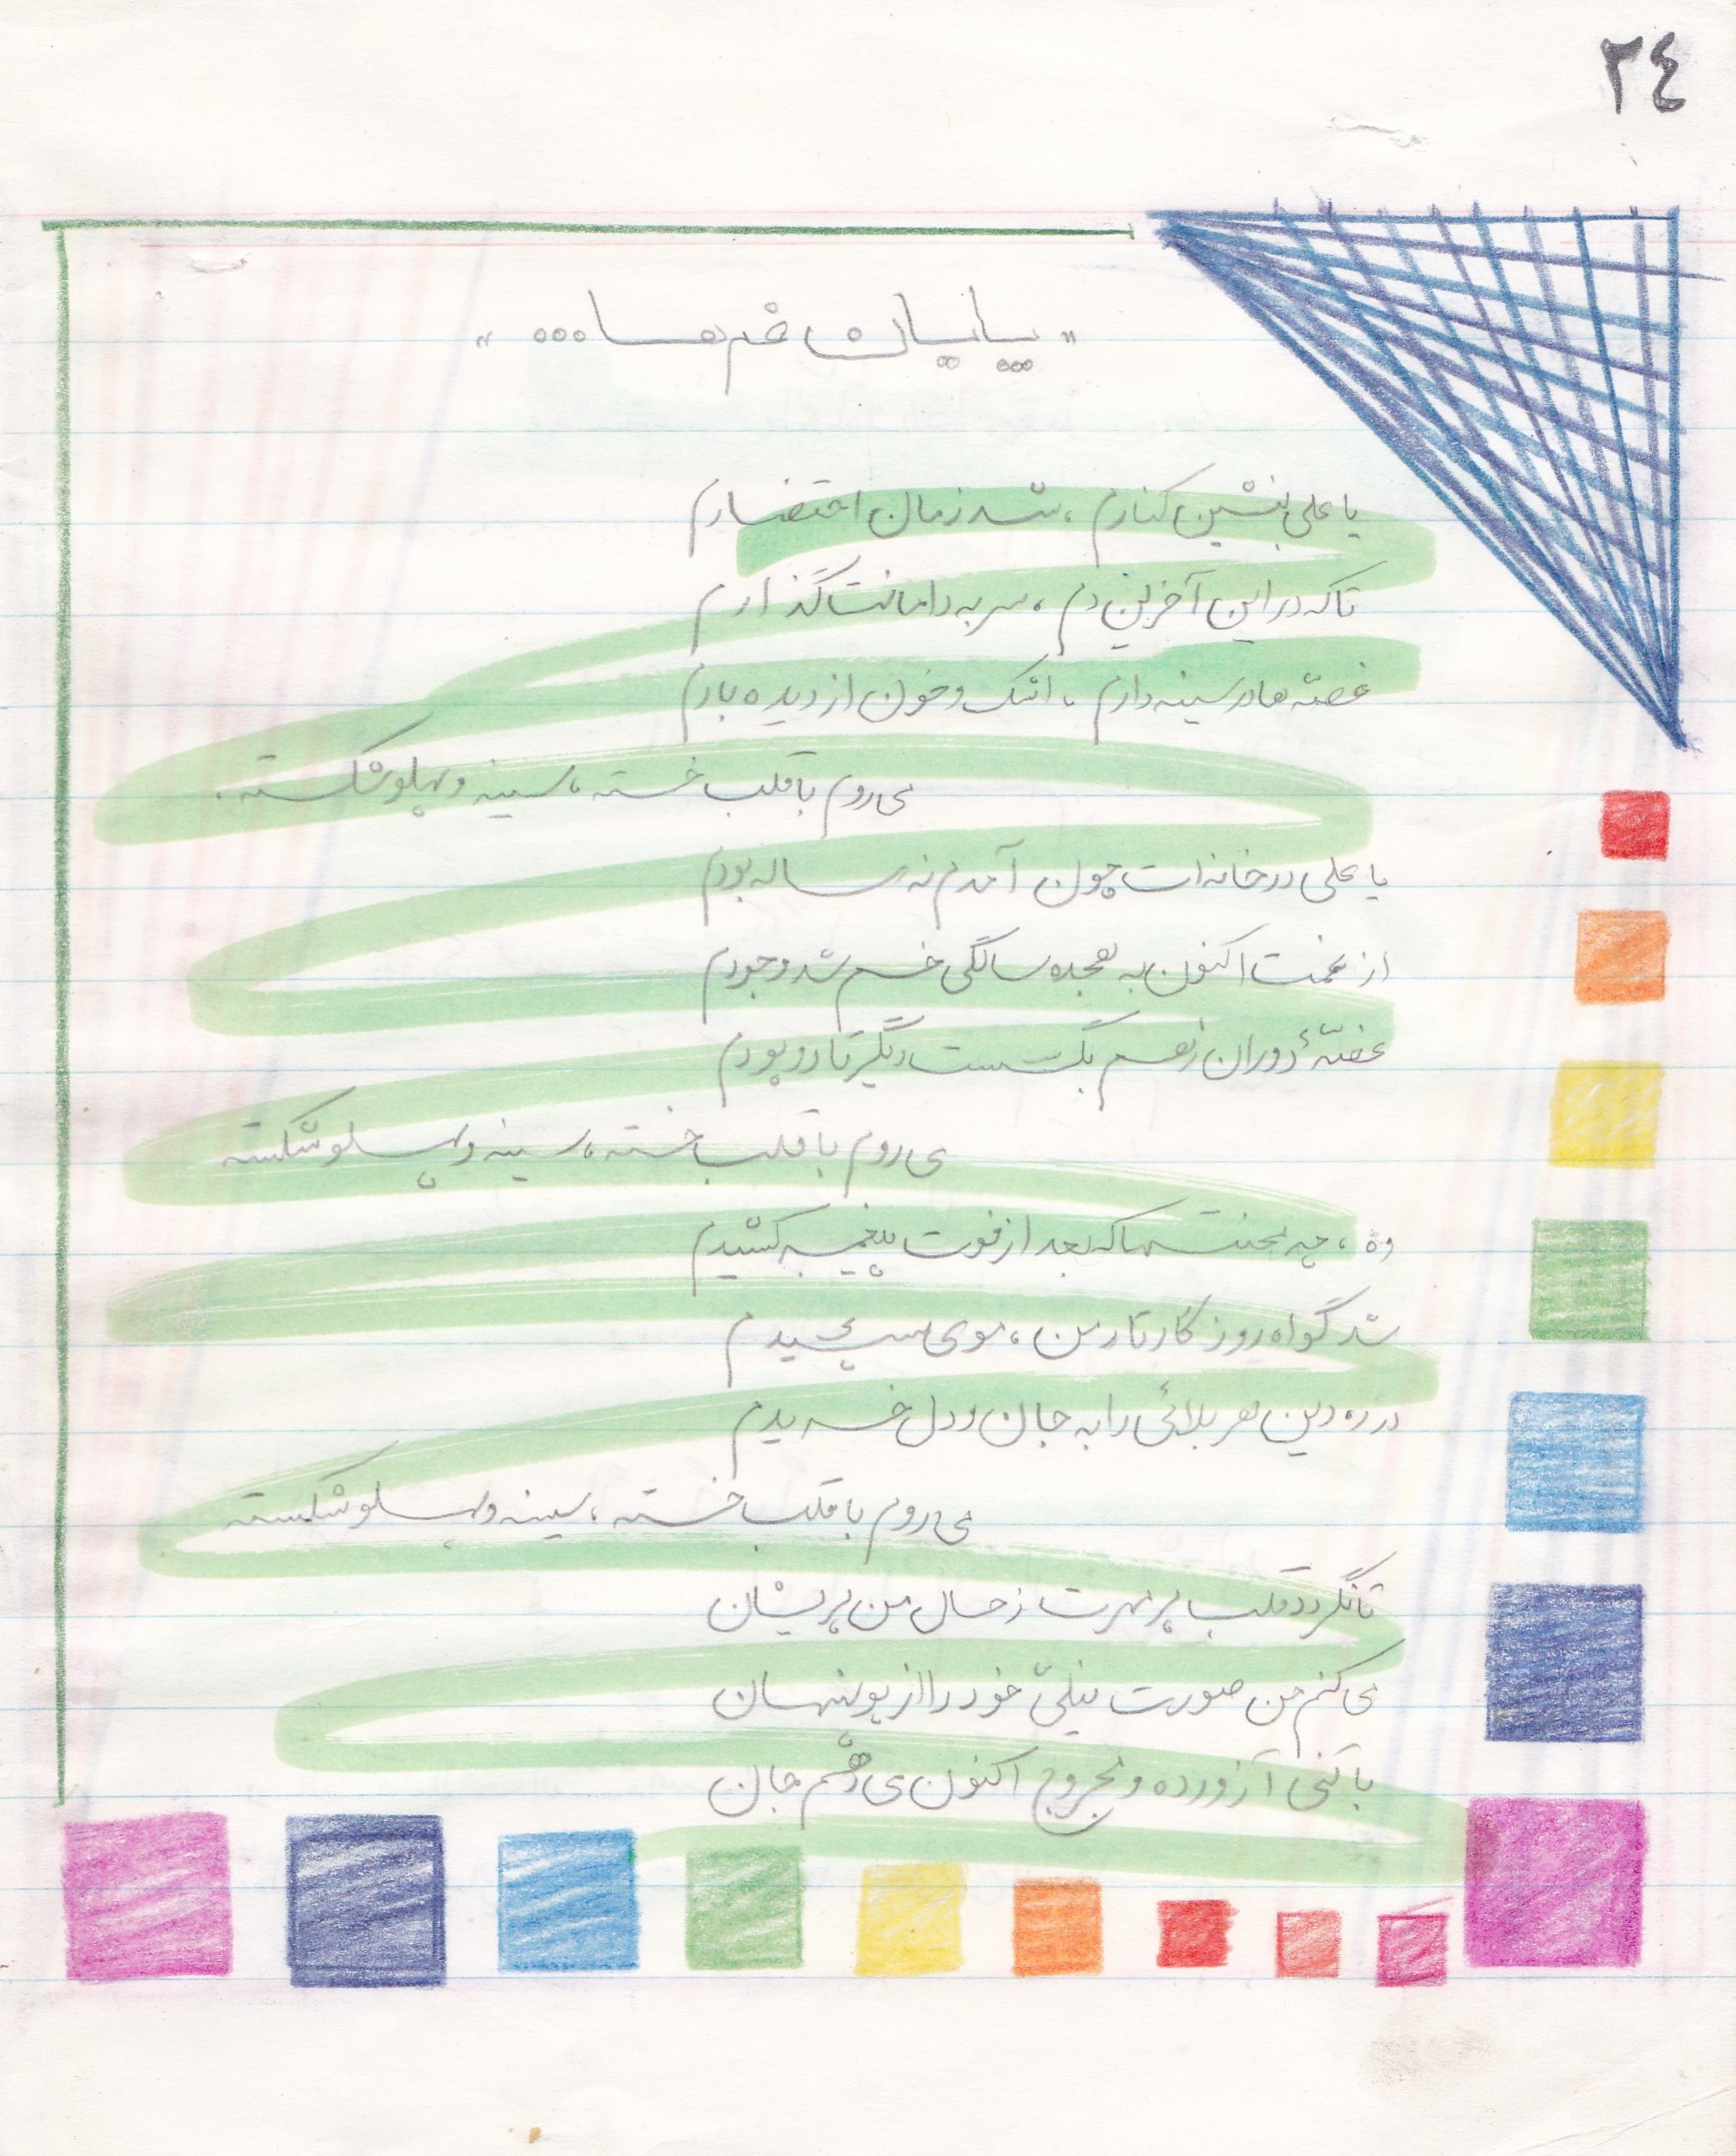 ٢٤
"پایان غم‌ها..."
یا علی بنشین کنارم ، شد زمان احتضارم
تا که در این آخرین دم ، سر به دامانت گذارم
غصّه‌ها در سینه دارم ، اشک و خون از دیده بارم
می‌روم با قلب خسته ، سینه و پهلو شکسته .
یا علی در خانه‌ات چون آمدم نه ساله بودم
از غمت اکنون به هجده سالگی خم شد وجودم
غصّهٔ دوران ز هم بگسست دیگر تار و پودم
می‌روم با قلب خسته ، سینه و پهلو شکسته
وه ، چه محنت‌ها که بعد از فوت پیغمبر کشیدم
شد گواه روزگار تار من ، موی سپیدم
در ره دین هر بلائی را به جان و دل خریدم
می‌روم با قلب خسته ، سینه و پهلو شکسته
تا نگردد قلب پر مهرت ز حال من پریشان
می‌کنم من صورت نیلیّ خود را از تو پنهان
با تنی آزورده و مجروح اکنون می‌دهم جان